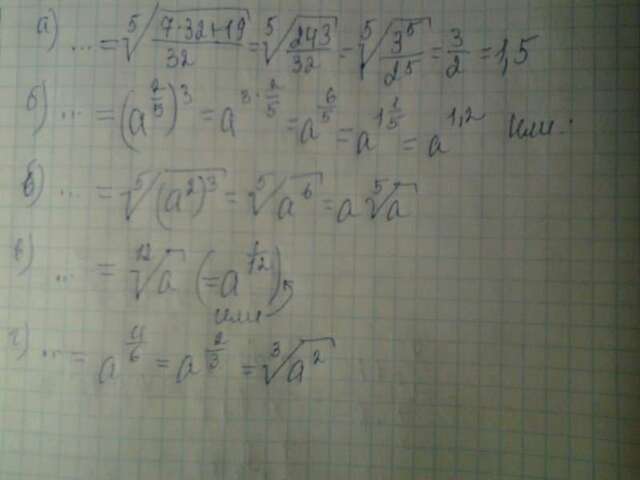 а) ... = ⁵√((7·32+19)/32) = ⁵√(243/32) = ⁵√(3⁵/2⁵) = 3/2 = 1,5
б) ... = (a^(2/5))³ = a^(3·2/5) = a^(6/5) = a^(1 1/5) = a^(1,2) или:
в) ... = ⁵√((a²)³) = ⁵√(a⁶) = a ⁵√a
в) ... = ¹²√a (= a^(1/12))
или
г) ... = a^(4/6) = a^(2/3) = ³√(a²)